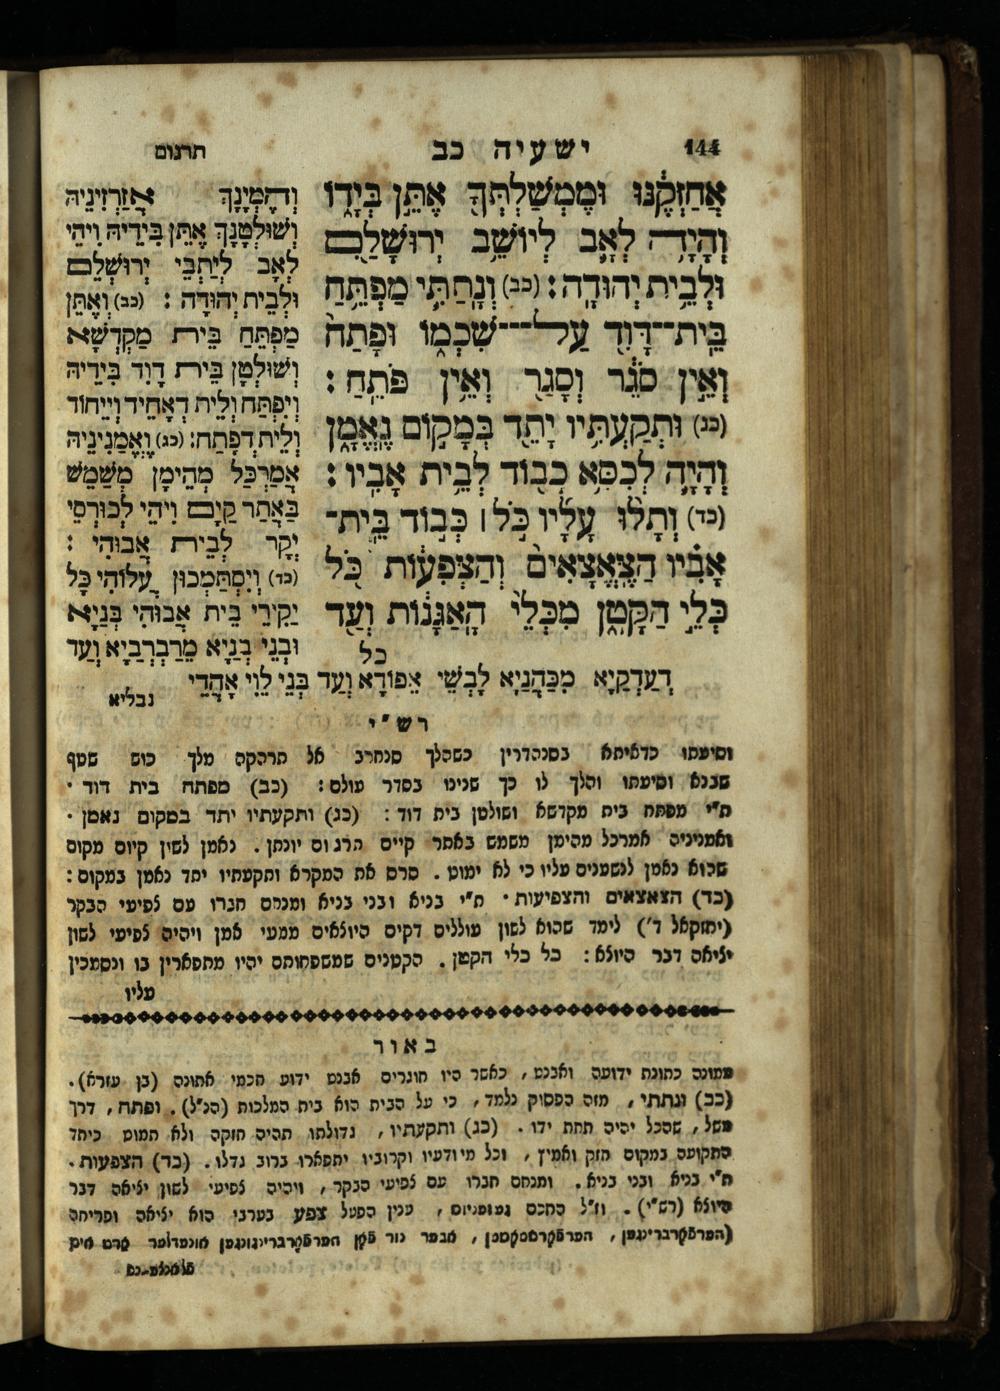 144
ישעיה כב
תרגום
אֲחַזְּקֶ֔נּוּ וּמֶֽמְשַׁלְתְּךָ֖ אֶתֵּ֣ן בְּיָד֑וֹ
וְהָיָ֥ה לְאָ֛ב לְיוֹשֵׁ֥ב יְרוּשָׁלַ֖ם
וּלְבֵ֥ית יְהוּדָֽה׃ (כב) וְנָֽתַתִּ֛י מַפְתֵּ֥חַ
בֵּֽית־דָּוִ֖ד עַל־שִׁכְמ֑וֹ וּפָתַח֙
וְאֵ֣ין סֹגֵ֔ר וְסָגַ֖ר וְאֵ֥ין פֹּתֵֽחַ׃
(כג) וּתְקַעְתִּ֥יו יָתֵ֖ד בְּמָק֣וֹם נֶֽאֱמָ֑ן
וְהָיָ֛ה לְכִסֵּ֥א כָב֖וֹד לְבֵ֥ית אָבִֽיו׃
(כד) וְתָל֨וּ עָלָ֜יו כֹּ֣ל ׀ כְּב֣וֹד בֵּית־
אָבִ֗יו הַצֶּֽאֱצָאִים֙ וְהַצְּפִע֔וֹת כֹּ֖ל
כְּלֵ֣י הַקָּטָ֑ן מִכְּלֵי֙ הָֽאַגָּנ֔וֹת וְעַ֖ד
כל
וְהֶמְיָנָךְ אֲזַרְזִינֵיהּ
וְשׁוּלְטָנָךְ אֶתֵּן בִּידֵיהּ וִיהֵי
לְאָב לְיַתְבֵי יְרוּשְׁלֵם
וּלְבֵית יְהוּדָה׃ (כב) וְאֶתֵּן
מַפְתֵּחַ בֵּית מַקְדְּשָׁא
וְשׁוּלְטָן בֵּית דָוִד בִּידֵיהּ
וְיִפְתַּח וְלֵית דְאָחִיד וְיֵיחוֹד
וְלֵית דְפָתַח׃ (כג) וֶאֱמַנִינֵיהּ
אֲמַרְכַּל מְהֵימָן מְשַׁמֵּשׁ
בַּאֲתַר קַיָם וִיהֵי לְכוּרְסֵי
יְקָר לְבֵית אֲבוּהִי׃
(כד) וְיִסְתַּמְכוּן עֲלוֹהִי כָּל
יַקִירֵי בֵּית אֲבוּהִי בְּנַיָא
וּבְנֵי בְנַיָא מֵרַבְרְבַיָא וְעַד
דְעַדְקַיָא מִכַּהֲנַיָא לָבְשֵׁי אֵפוֹדָא וְעַד בְּנֵי לֵוִי אָחֲדֵי
נבליא
רש״י
וסיעתו כדאיתא בסנהדרין כשהלך סנחרב אל תרהקה מלך כוש שטף
שבנא וסיעתו והלך לו כך שנינו בסדר עולם: (כב) מפתח בית דוד ·
ת״י מפתח בית מקדשא ושולטן בית דוד: (כג) ותקעתיו יתד במקום נאמן ·
ואמניניה אמרכל מהימן משמש באתר קיים תרגום יונתן. נאמן לשון קיום מקום
שהוא נאמן לנשמנים עליו כי לא ימוט. סרס את המקרא ותקעתיו יתד נאמן במקום:
(כד) הצאצאים והצפיעות · ת״י בניא ובני בניא ומנחם חברו עם צפיעי הבקר
(יחזקאל ד׳) לימד שהוא לשון עוללים דקים היוצאים ממעי אמן ויהיה צפיעי לשון
יציאה דבר היוצא: כל כלי הקטן. הקטנים שמשפחותם יהיו מתפארין בו ונסמכין
עליו
באור
ממונה כתונת ידועה ואבנט, כאשר היו חוגרים אבנט ידוע חכמי אתונה (בן עזרא).
(כב) ונתתי, מזה הפסוק נלמד, כי על הבית הוא בית המלכות (הנ״ל). ופתח, דרך
משל, שהכל יהיה תחת ידו. (כג) ותקעתיו, גדולתו תהיה חזקה ולא תמוט כיתד
התקועה במקום חזק ואמיץ, וכל מיודעיו וקרוביו יתפארו ברוב גדלו. (כד) הצפעות.
ת״י בניא ובני בניא. ומנחם חברו עם צפיעי הבקר, ויהיה צפיעי לשון יציאה דבר
היוצא (רש״י). וז״ל החכם געזעניוס, ענין הפעל צפע בערבי הוא יציאה ופריחה